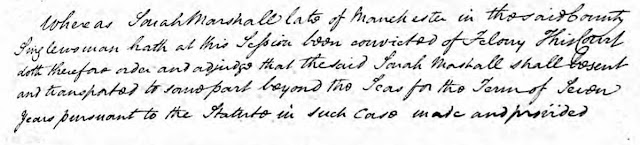 Whereas Sarah Marshall late of Manchester in the said County
Singlewoman hath at this Session been convicted of Felony This Court
doth therefore order and adjudge that the said Sarah Mashall shall be sent
and transported to some part beyond the Seas for the Term of Seven
Years pursuant to the Statute in such Case made and provided